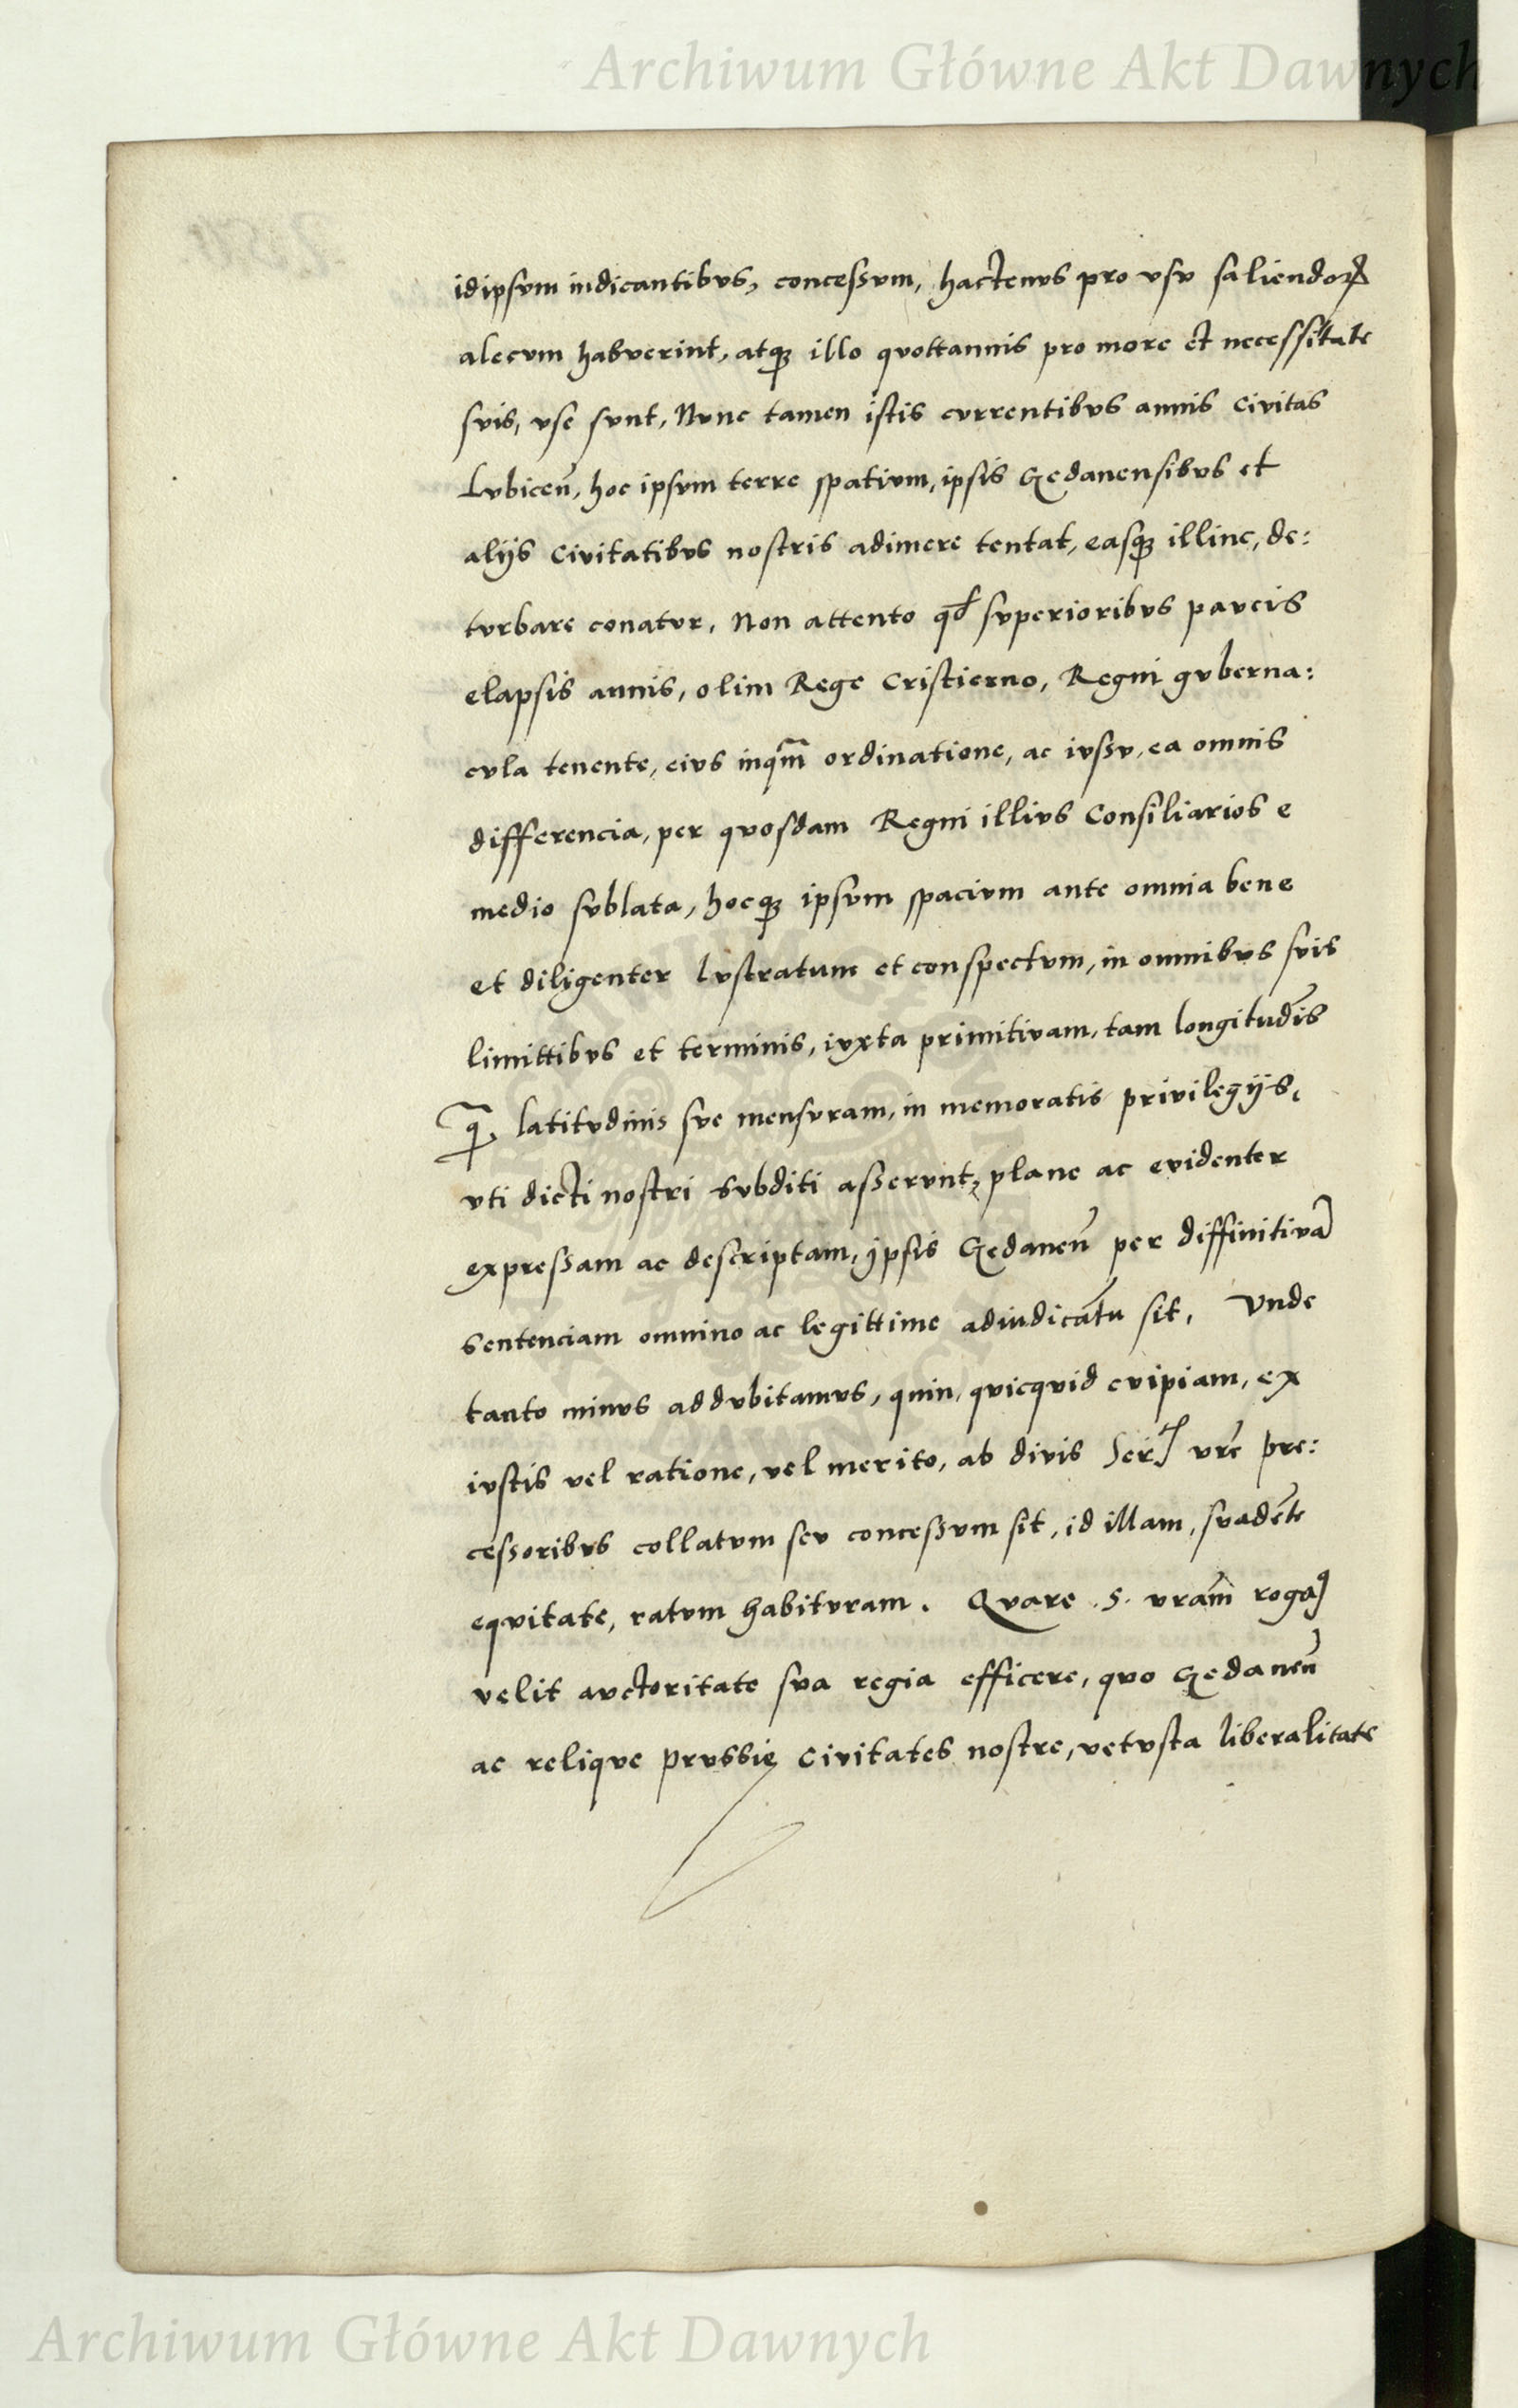 Archiwum Główne Akt Dawnych
idipsvm indicantibvs, concessvm, hactenvs pro vsv saliendoꝝ
alecvm habverint, atqꝫ illo qvottannis pro more et necessitate
svis, vse svnt, Nvnc tamen istis cvrrentibvs annis civitas
Lvbiceñ, hoc ipsvm terre spativm, ipsis Gedanensibvs et
alijs civitatibvs nostris adimere tentat, easqꝫ illinc, de:
tvrbare conatvr, Non attento qđ svperioribvs pavcis
elapsis annis, olim Rege Cristierno, Regni gvberna:
cvla tenente, eivs inqm̄ ordinatione, ac ivssv, ea omnis
differencia, per qvosdam Regni illivs Consiliarios e
medio svblata, hocqꝫ ipsvm spacivm ante omnia bene
et diligenter lvstratum et conspectvm, in omnibvs svis
limittibvs et terminis, ivxta primitivam, tam longitudīs
q̄, latitvdinis sve mensvram, in memoratis privilegijs,
vti dicti nostri svbditi asservnt, plane ac evidenter
expressam ac descriptam, ipsis Gedaneñ per diffinitivā
sentenciam omnino ac legittime adiudicātu sit, Vnde
tanto minvs addvbitamvs, qvin, qvicqvid cvipiam, ex
ivstis vel ratione, vel merito, ab divis Ser vr̄e pre:
cessoribvs collatvm sev concessvm sit, id illam, svadēte
eqvitate, ratvm habitvram. Qvare .S. vrām rogaꝫ
velit avctoritate sva regia efficere, qvo Gedaneñ
ac reliqve prvssię civitates nostre, vetvsta liberalitate
Archiwum Główne Akt Dawnych